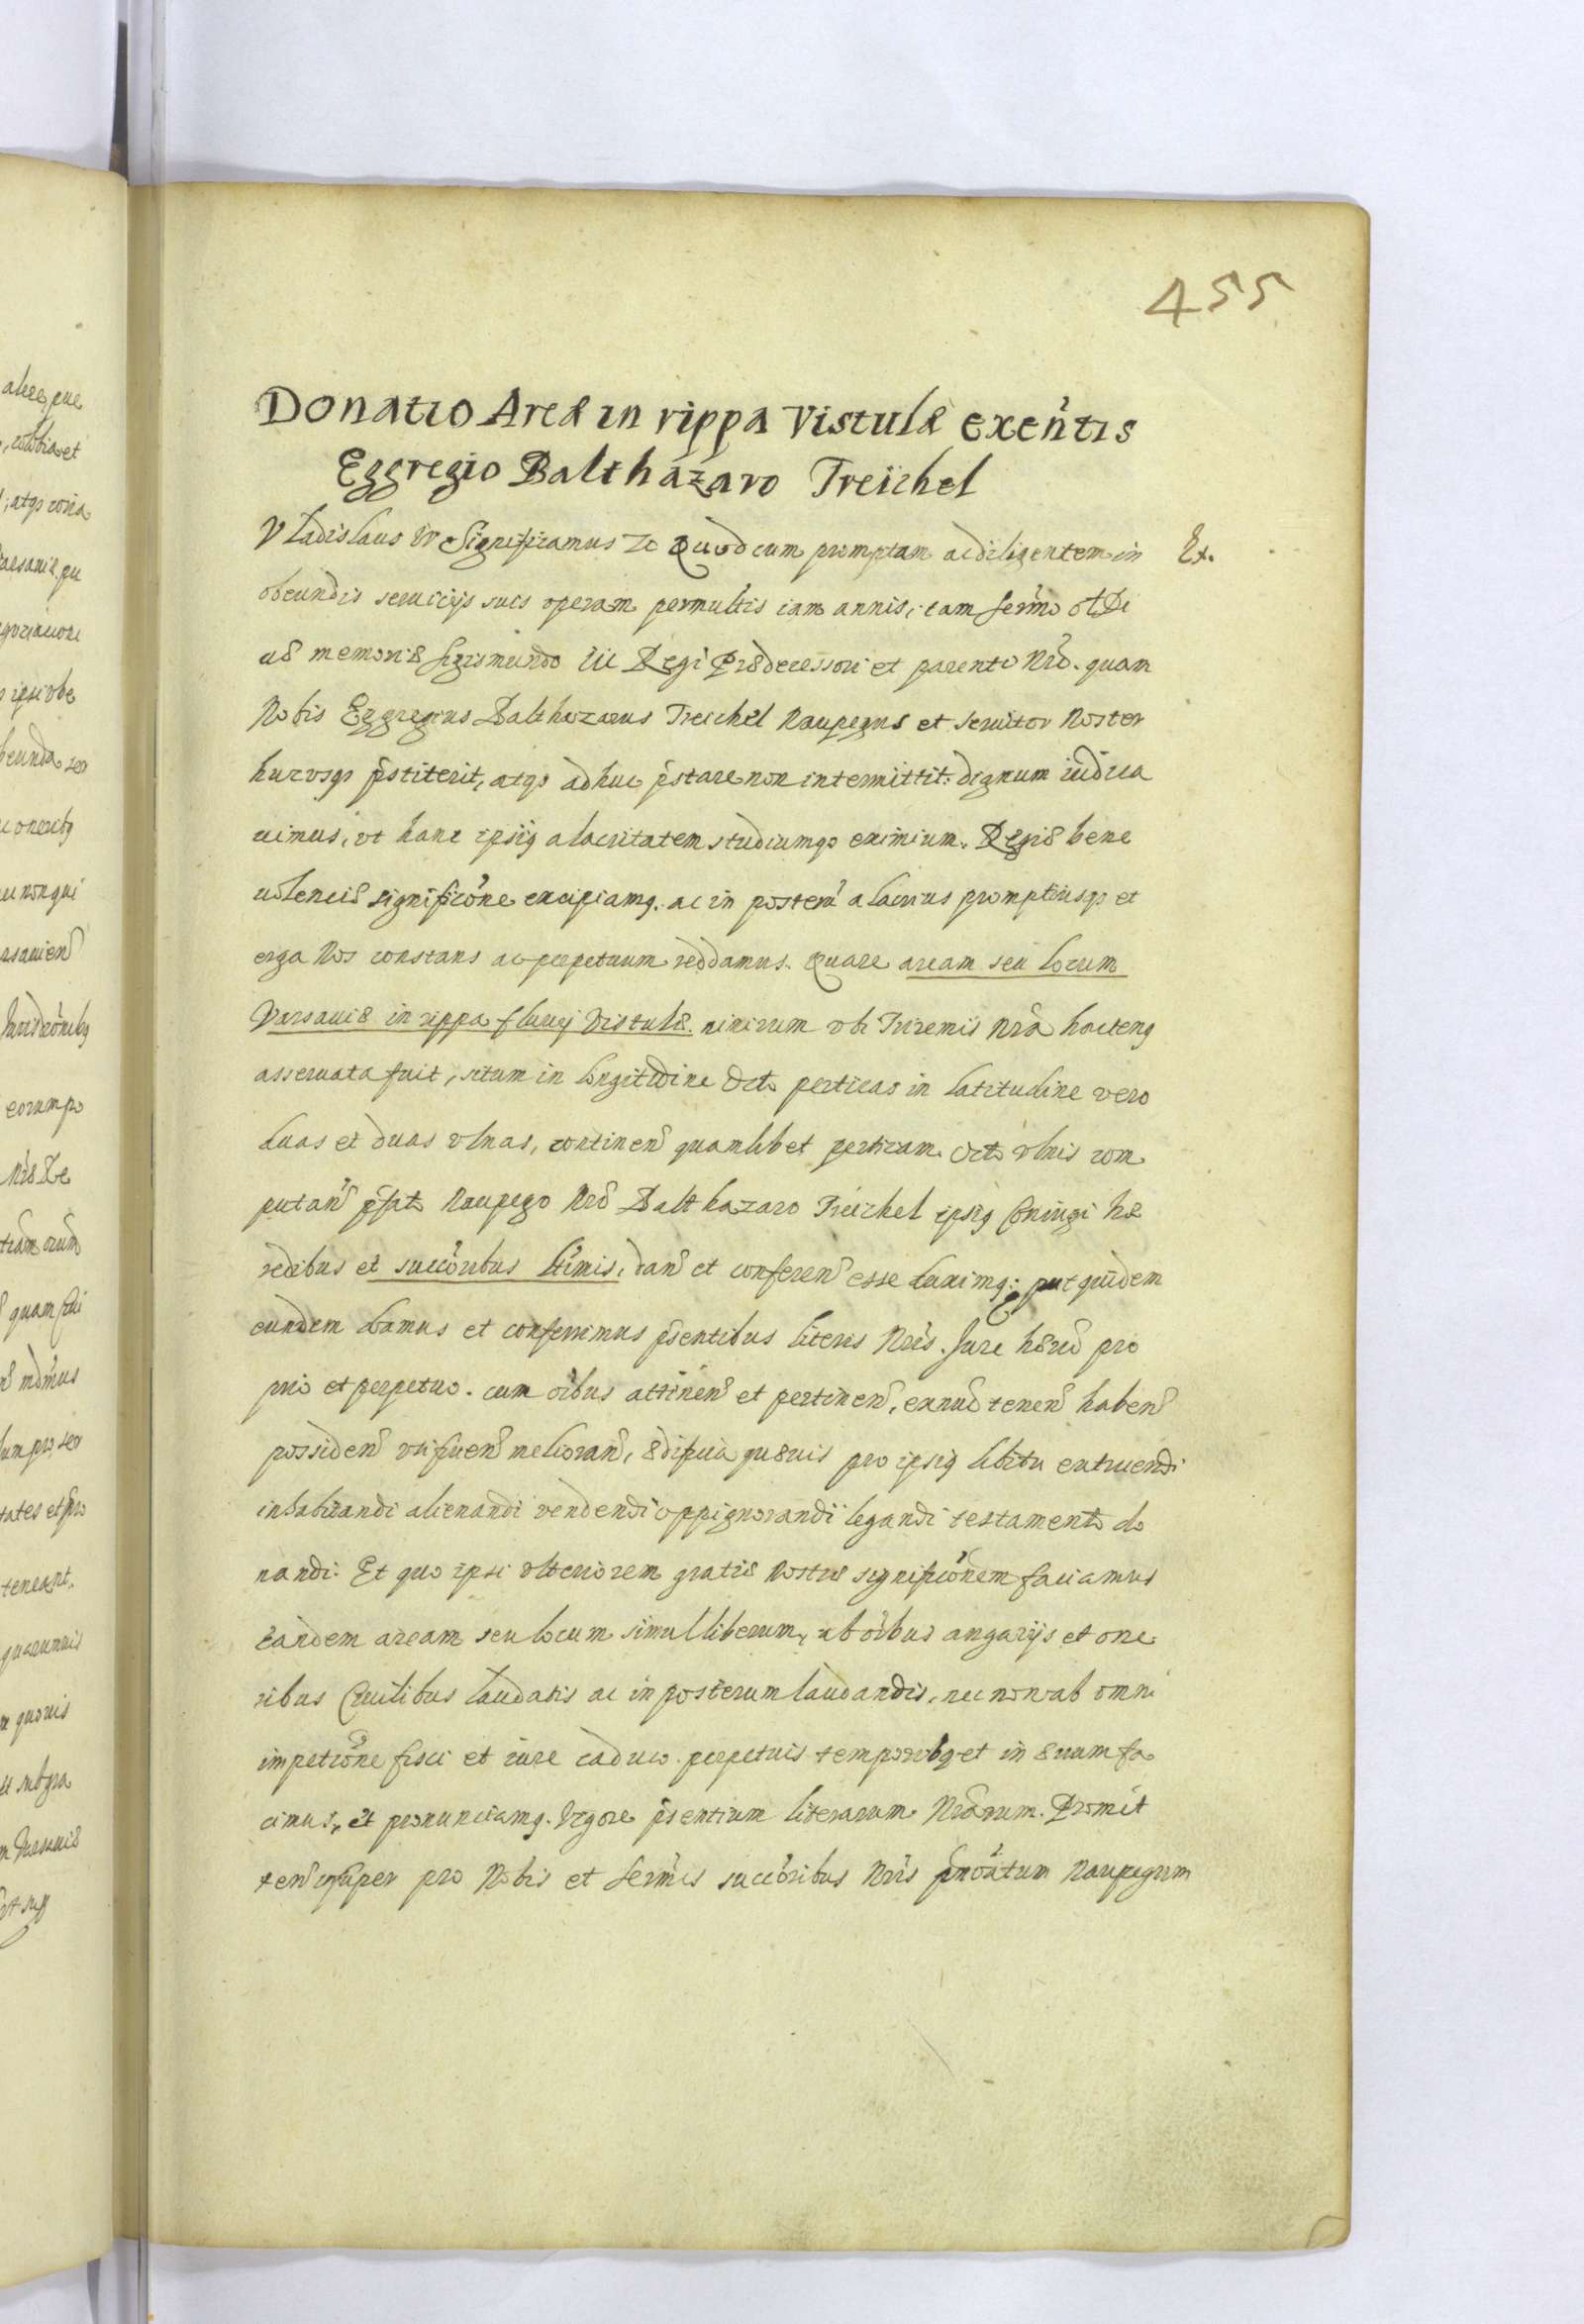 455
Donatio Areæ in rippa Vistulæ exẽntis
Eggregio Balthazaro Treichel
Vladislaus IV Significamus &c Quod cum promptam ac diligentem in
Ex.
obeundis seruicijs suis operam permultis iam annis, tam sermo olĩ Di
uæ memoriæ Sigismundo III Regi Prædecessori et parenti Nrõ. quam
Nobis Eggregius Balthazarus Treichel Naupegus et seruitor Noster
hucusqȝ p̃stiterit, atqȝ adhuc p̃stare non intermittit: dignum iudica
uimus, vt hanc ipsiq alacritatem studiumqȝ eximium. Regiæ bene
uolenciæ significõne excipiamq. ac in posterũ alacrius promptiusqȝ et
erga Nos constans ac perpetuum reddamus. Quare aream seu locum
Varsauiæ in rippa fluuij Vistulæ. nimirum vbi Triremis Nrã hactenq
asseruata fuit, situm in longitudine Octo perticas in latitudine vero
duas et duas vlnas, continen̄ quamlibet perticam Octo vlnis com
putan̄ p̃fato Naupego Nrõ Balthazaro Treichel ipsiq Coniugi hæ
redibus et succõribus ltĩmis, dan̄ et conferen̄ esse duximq: put quidem
eundem damus et conferrimus p̃sentibus literis Nrĩs. Jure hæred̃ pro
prio et perpetuo. cum oĩbus attinen̄ et pertinen̄, exnũc tenen̄ haben̄
possiden̄ vtifruen̄ melioran̄, ædificia quæuis pro ipsiq libitu extruendi
inhabitandi alienandi vendendi oppignorandi legandi testamento do
nandi: Et quo ipsi vlteriorem gratiæ Nostræ significõnem faciamus
eandem aream seu locum simul liberum, ab oĩbus angarijs et one
ribus Ciuilibus laudatis ac in posterum laudandis, nec non ab omni
impeticõne fisci et iure caduco perpetuis temporibq et in æuum fa
cimus, et pronunciamq. Vigore p̃sentium literarum Nrãrum. Promit
ten̄ insuper pro Nobis et sermĩs succõribus Nrĩs p̃noĩatum Naupegum